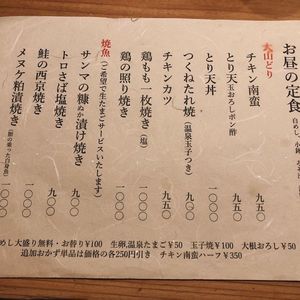 お昼の定食
大山どり
チキン南蛮 九五〇
とり天玉おろしポン酢 九五〇
とり天丼 九五〇
つくねたれ焼(温泉玉子つき) 九五〇
チキンカツ 九五〇
鶏もも一枚焼き(塩) 一〇〇〇
鶏の照り焼き 一〇〇〇
焼魚(ご希望で生たまごサービスいたします)
サンマの糠ぬか漬け焼き 九〇〇
トロさば塩焼き 九〇〇
鮭の西京焼き 一〇〇〇
メヌケ粕漬焼き(脂の乗った白身魚) 一〇〇〇
めし大盛り無料・お替り¥100 生卵,温泉たまご¥50 玉子焼¥100 大根おろし¥50
追加おかず単品は価格の各250円引き チキン南蛮ハーフ¥350